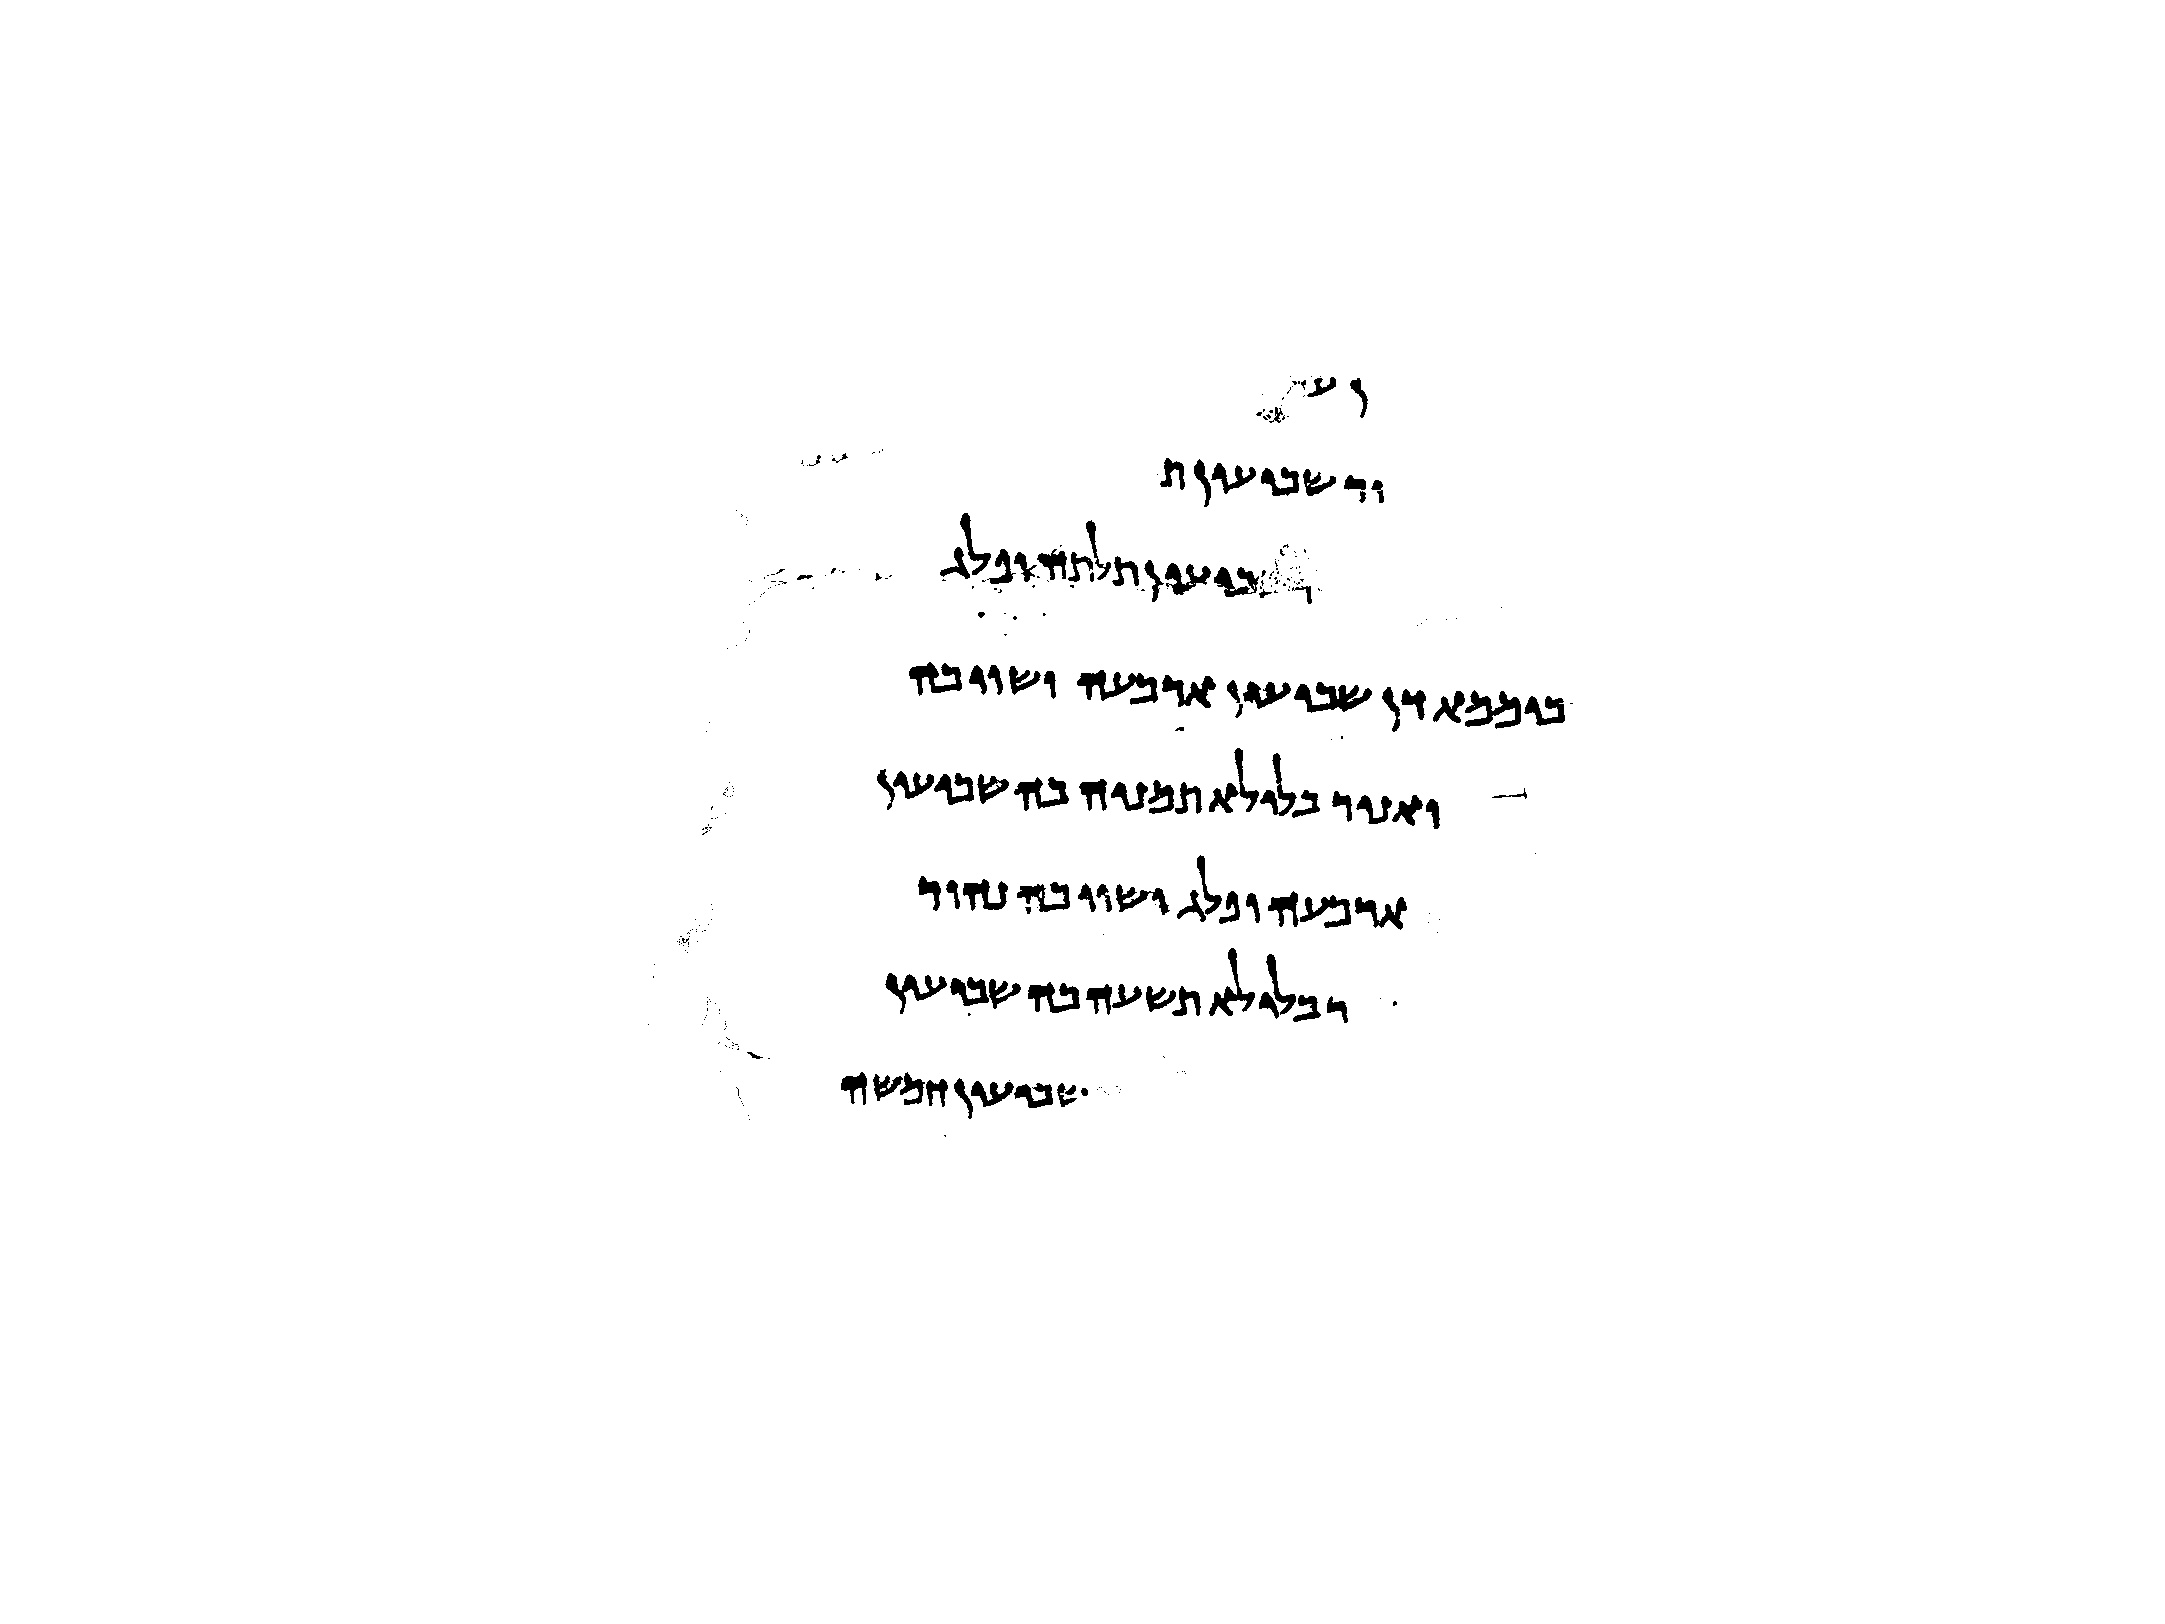 שביעין ת
שביעין תלתה ופלג
ביממא דן שביעין ארבעה ושוי בה
ואניר בליליא תמניה בה שביעין
ארבעה ופלג ושוי בה נהור
ר בליליא תשעה בה שביעין
שביעין חמשה